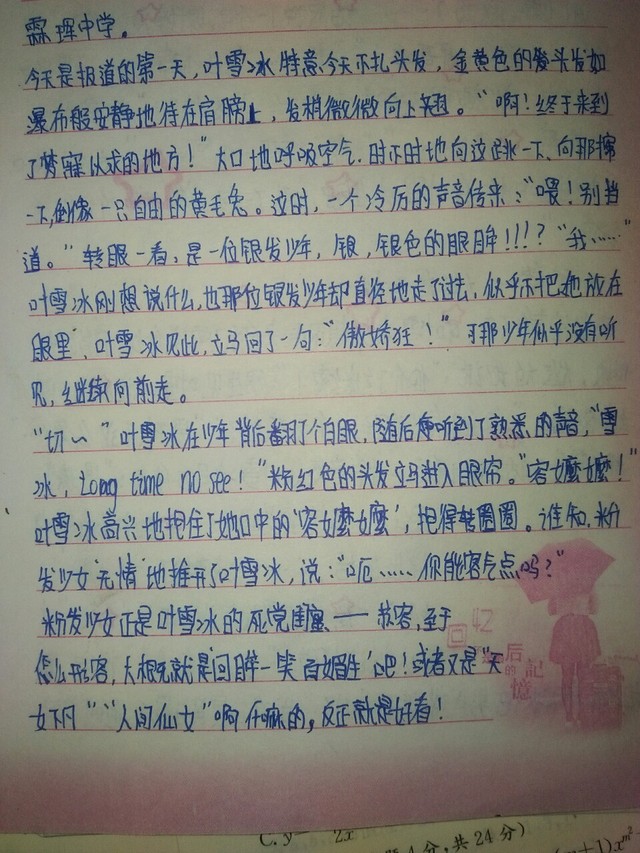 霖珲中学。
今天是报道的第一天，叶雪冰特意今天不扎头发，金黄色的卷头发如
瀑布般安静地待在肩膀上，发梢微微向上翘。“啊！终于来到
了梦寐以求的地方！”大口地呼吸空气，时不时地向这跳一下、向那撺
一下，倒像一只自由的黄毛兔。这时，一个冷厉的声音传来：“喂！别挡
道。”转眼一看，是一位银发少年，银，银色的眼眸！！！？“我……”
叶雪冰刚想说什么，也那位银发少年却直径地走了过去，似乎不把她放在
眼里、叶雪冰见此，立马回了一句：“傲娇狂！”可那少年似乎没有听
见，继续向前走。
“切～”叶雪冰在少年背后翻了个白眼，随后便听到了熟悉的声音，“雪
冰，Long time no see！”粉红色的头发立马进入眼帘。“容嬷嬷！
叶雪冰高兴地抱住了她口中的‘容嬷嬷’，抱得转圈圈。谁知，粉
发少女‘无情’地推开了叶雪冰，说：“呃……你能客气点吗？”
粉发少女正是叶雪冰的死党闺蜜——苏容，至于
怎么形容，大概就是‘回眸一笑百媚生’吧！或者又是“天
女下凡”“人间仙女”啊什嘛的，反正就是好看！
回忆
最后的記憶
C. y= 2x
4分，共24分）
(m+1)x^m²